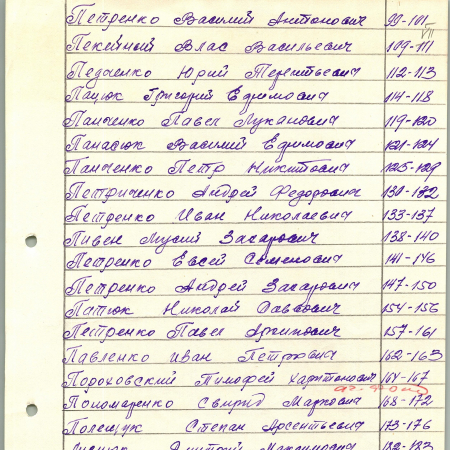 Петренко Василий Антонович 99-101
Пекельный Влас Васильевич 109-111
Педченко Юрий Терентьевич 112-113
Пацюк Григорий Ефимович 114-118
Панченко Павел Луканович 119-120
Панасюк Василий Ефимович 121-124
Панченко Петр Никитович 125-129
Петриченко Андрей Федорович 130-132
Петренко Иван Николаевич 133-137
Пивен Мусий Захарович 138-140
Петренко Евсей Семенович 141-146
Петренко Андрей Захарович 147-150
Патюк Николай Саввович 154-156
Петренко Павел Архипович 157-161
Павленко Иван Петрович 162-163
Пороховский Тимофей Харитонович 164-167
Пономаренко Свирид Маркович 168-172
Полещук Степан Арсентьевич 173-176
182-183